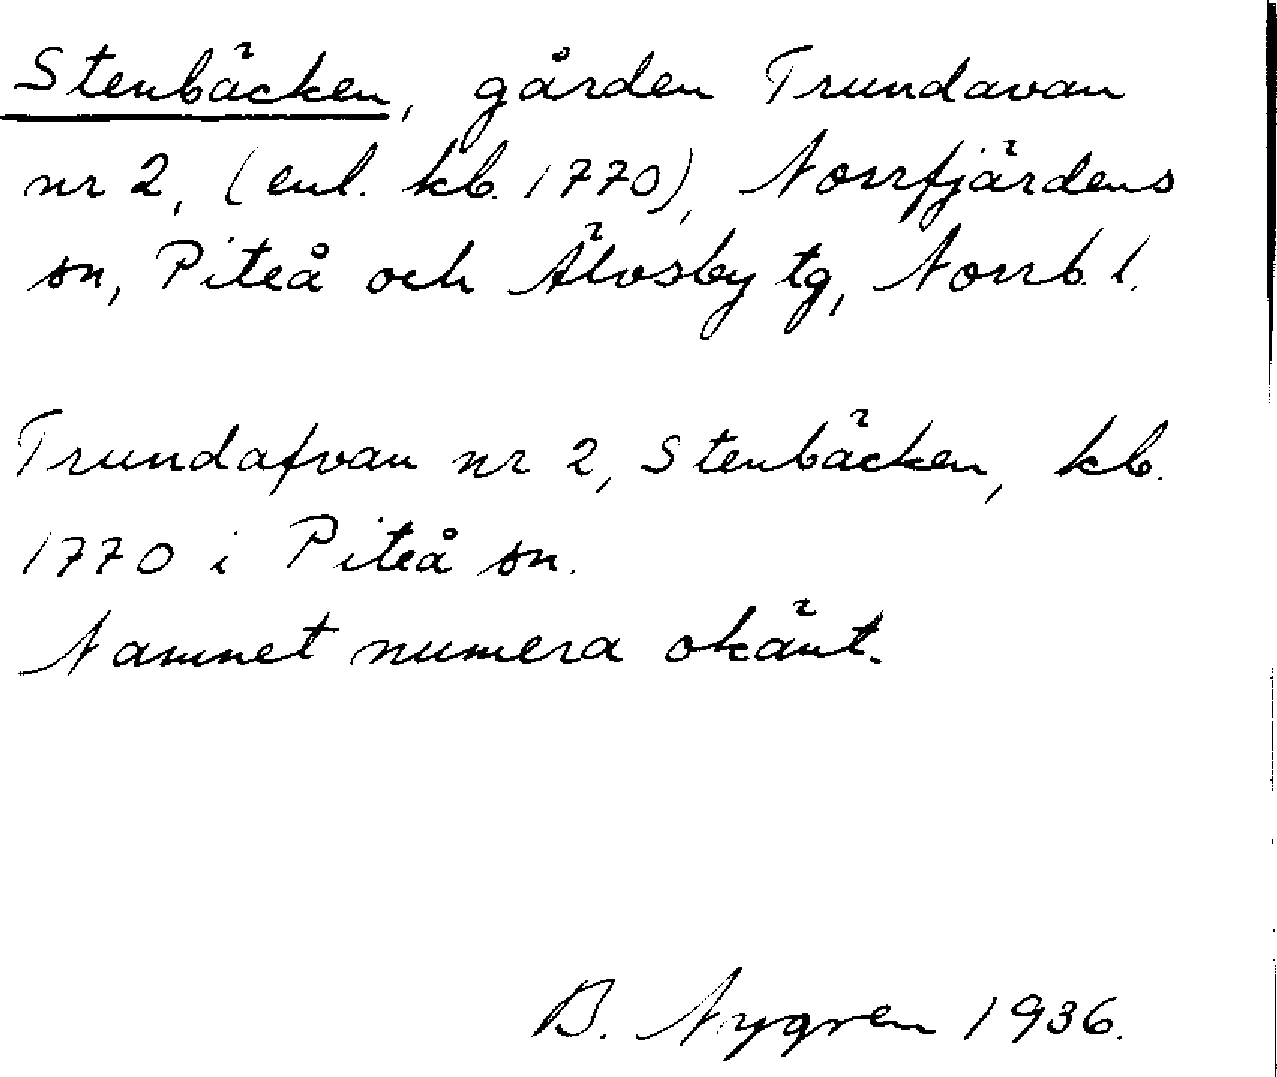 Stenbäcken, gården Trundavan
nr 2, (enl. kb. 1770), Norrfjärdens
sn, Piteå och Älvsby tg, Norrb. l.
Trundafvan nr 2, Stenbäcken, kb.
1770 i Piteå sn.
Namnet numera okänt.
B. Nygren 1936.